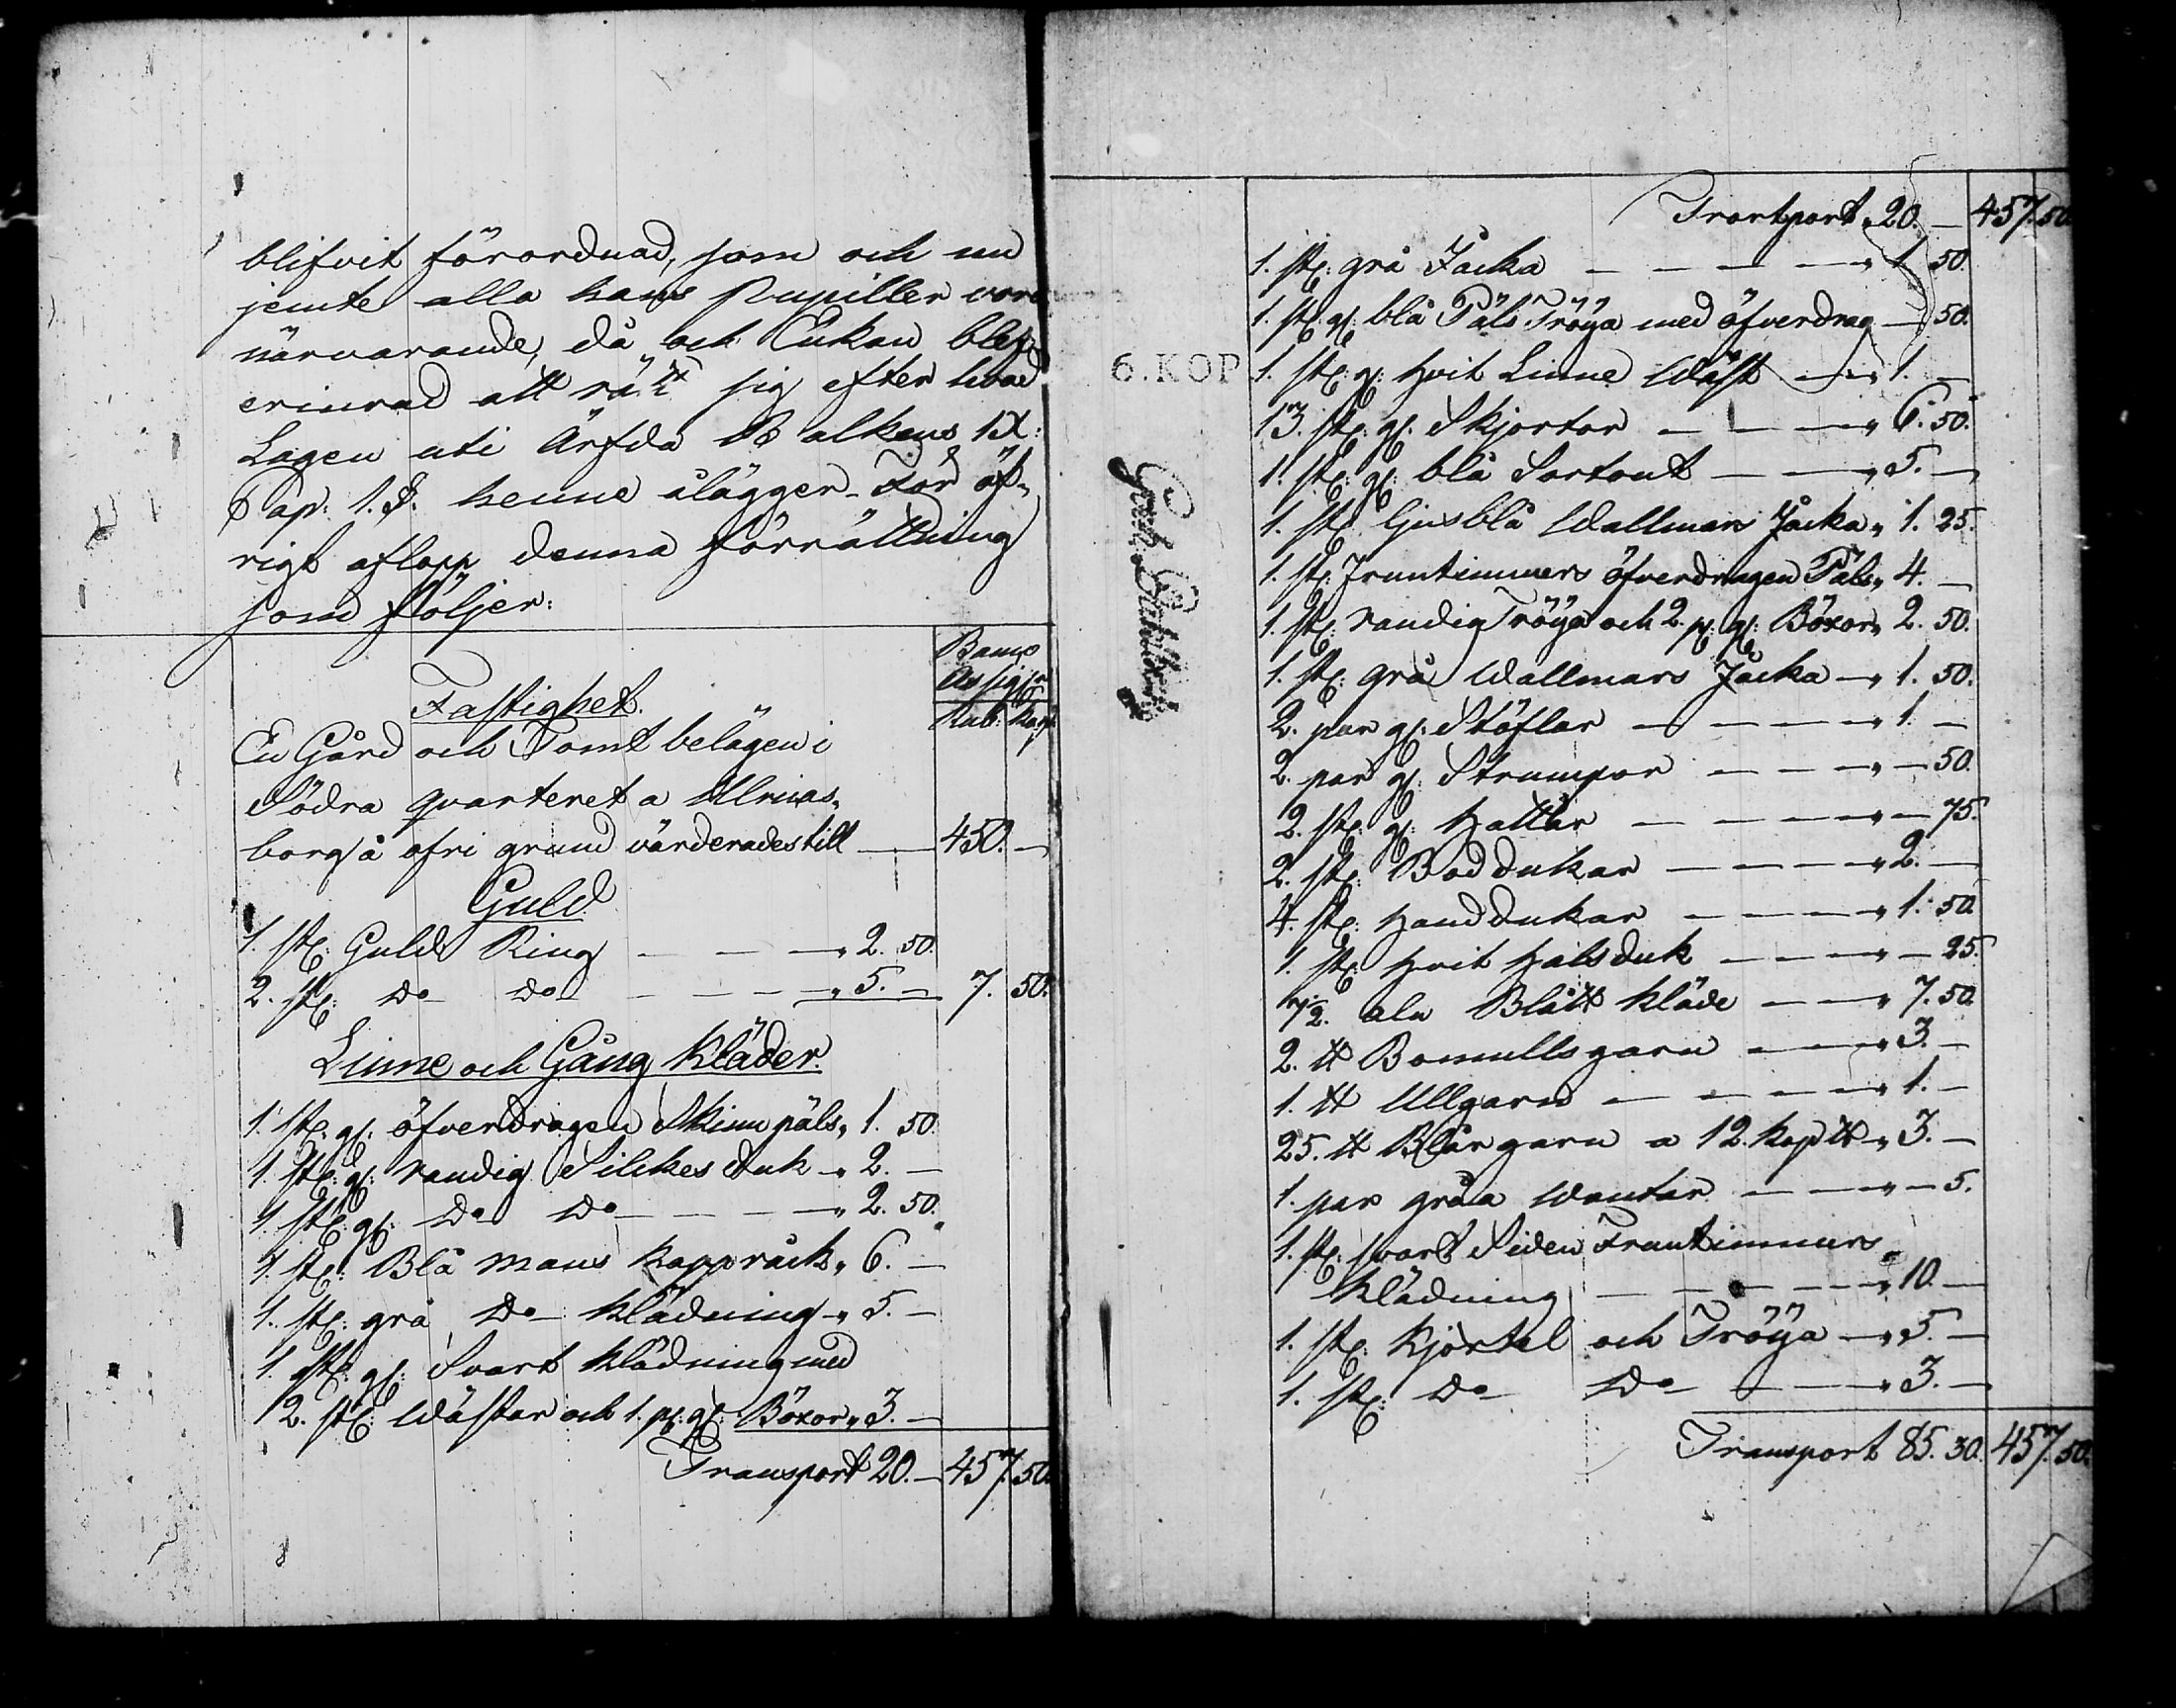 blifvit förordnad, som och nu
jemte alla hans Pupiller voro
närvarande, då och Enkan blef
erinrad att rätt sig efter hvad
Lagen uti Ärfda Balkens IX:
Cap: 1. §. henne ålägger. För öf-
rigt aflopp denna förrättning
som följer:
Banco
Assign:
Rub: Kop:
Fastighet.
En Gård och Tomt belägen i
Södra qvarteret a Ulricas-
borg å ofri grund värderades till — 450. —
Guld
1. st: Guld Ring — — — " 2. 50.
2. st: Do Do — — — " 5. — 7. 50.
Linne och Gång Kläder.
1. st: gl: öfverdragen Skinnpäls " 1. 50.
1. st: gl: randig Silkes duk — " 2. —
1. st: gl: Do Do — — — " 2. 50.
1. st: Blå Mans Kappråck " 6. —
1. st: grå Do Klädning — " 5. —
1. st: gl: Svart Klädning med
2. st: Wästar och 1. p: gl: Böxor " 3. —
Transport 20. — 457. 50.
Trartport 20. — 457. 50.
1. st: grå Jacka — — — — " 1. 50.
1. st: gl: blå Päls Tröya med öfverdrag — 50.
6. KOP
1. st: gl: hvit Linne Wäst — " 1. —
13. st: gl: Skjortor — — — " 6. 50.
1. st: gl: blå Sortout — — " 5. —
1. st: ljusblå Wallmars Jacka " 1. 25.
1. st: Fruntimmers öfverdragen Päls " 4. —
1. st: randig Tröya och 2. p: gl: Böxor " 2. 50.
1. st: grå Wallmars Jacka — " 1. 50.
2. par gl: Stöflar — — — — " 1. —
2. par gl: Strumpor — — — " — 50.
2. st: gl: Hattar — — — — " — 75.
2. st: Bod dukar — — — — " 2. —
4. st: Handdukar — — — — " 1. 50.
1. st: Hvit Halsduk — — — " — 25.
7/2. aln Blått Kläde — — " 7. 50.
2. ℔ Bomullsgarn — — — " 3. —
1. ℔ Ullgarn — — — — " 1. —
25. ℔ Blårgarn a 12. kop ℔ " 3. —
1. par gråa Wantar — — — " — 5.
1. st: svart Siden Fruntimmers
Klädning — — — — — " 10. —
1. st: Kjortel och Tröya — " 5. —
1. st: Do Do — — — " 3. —
Transport 85. 30. 457. 50.